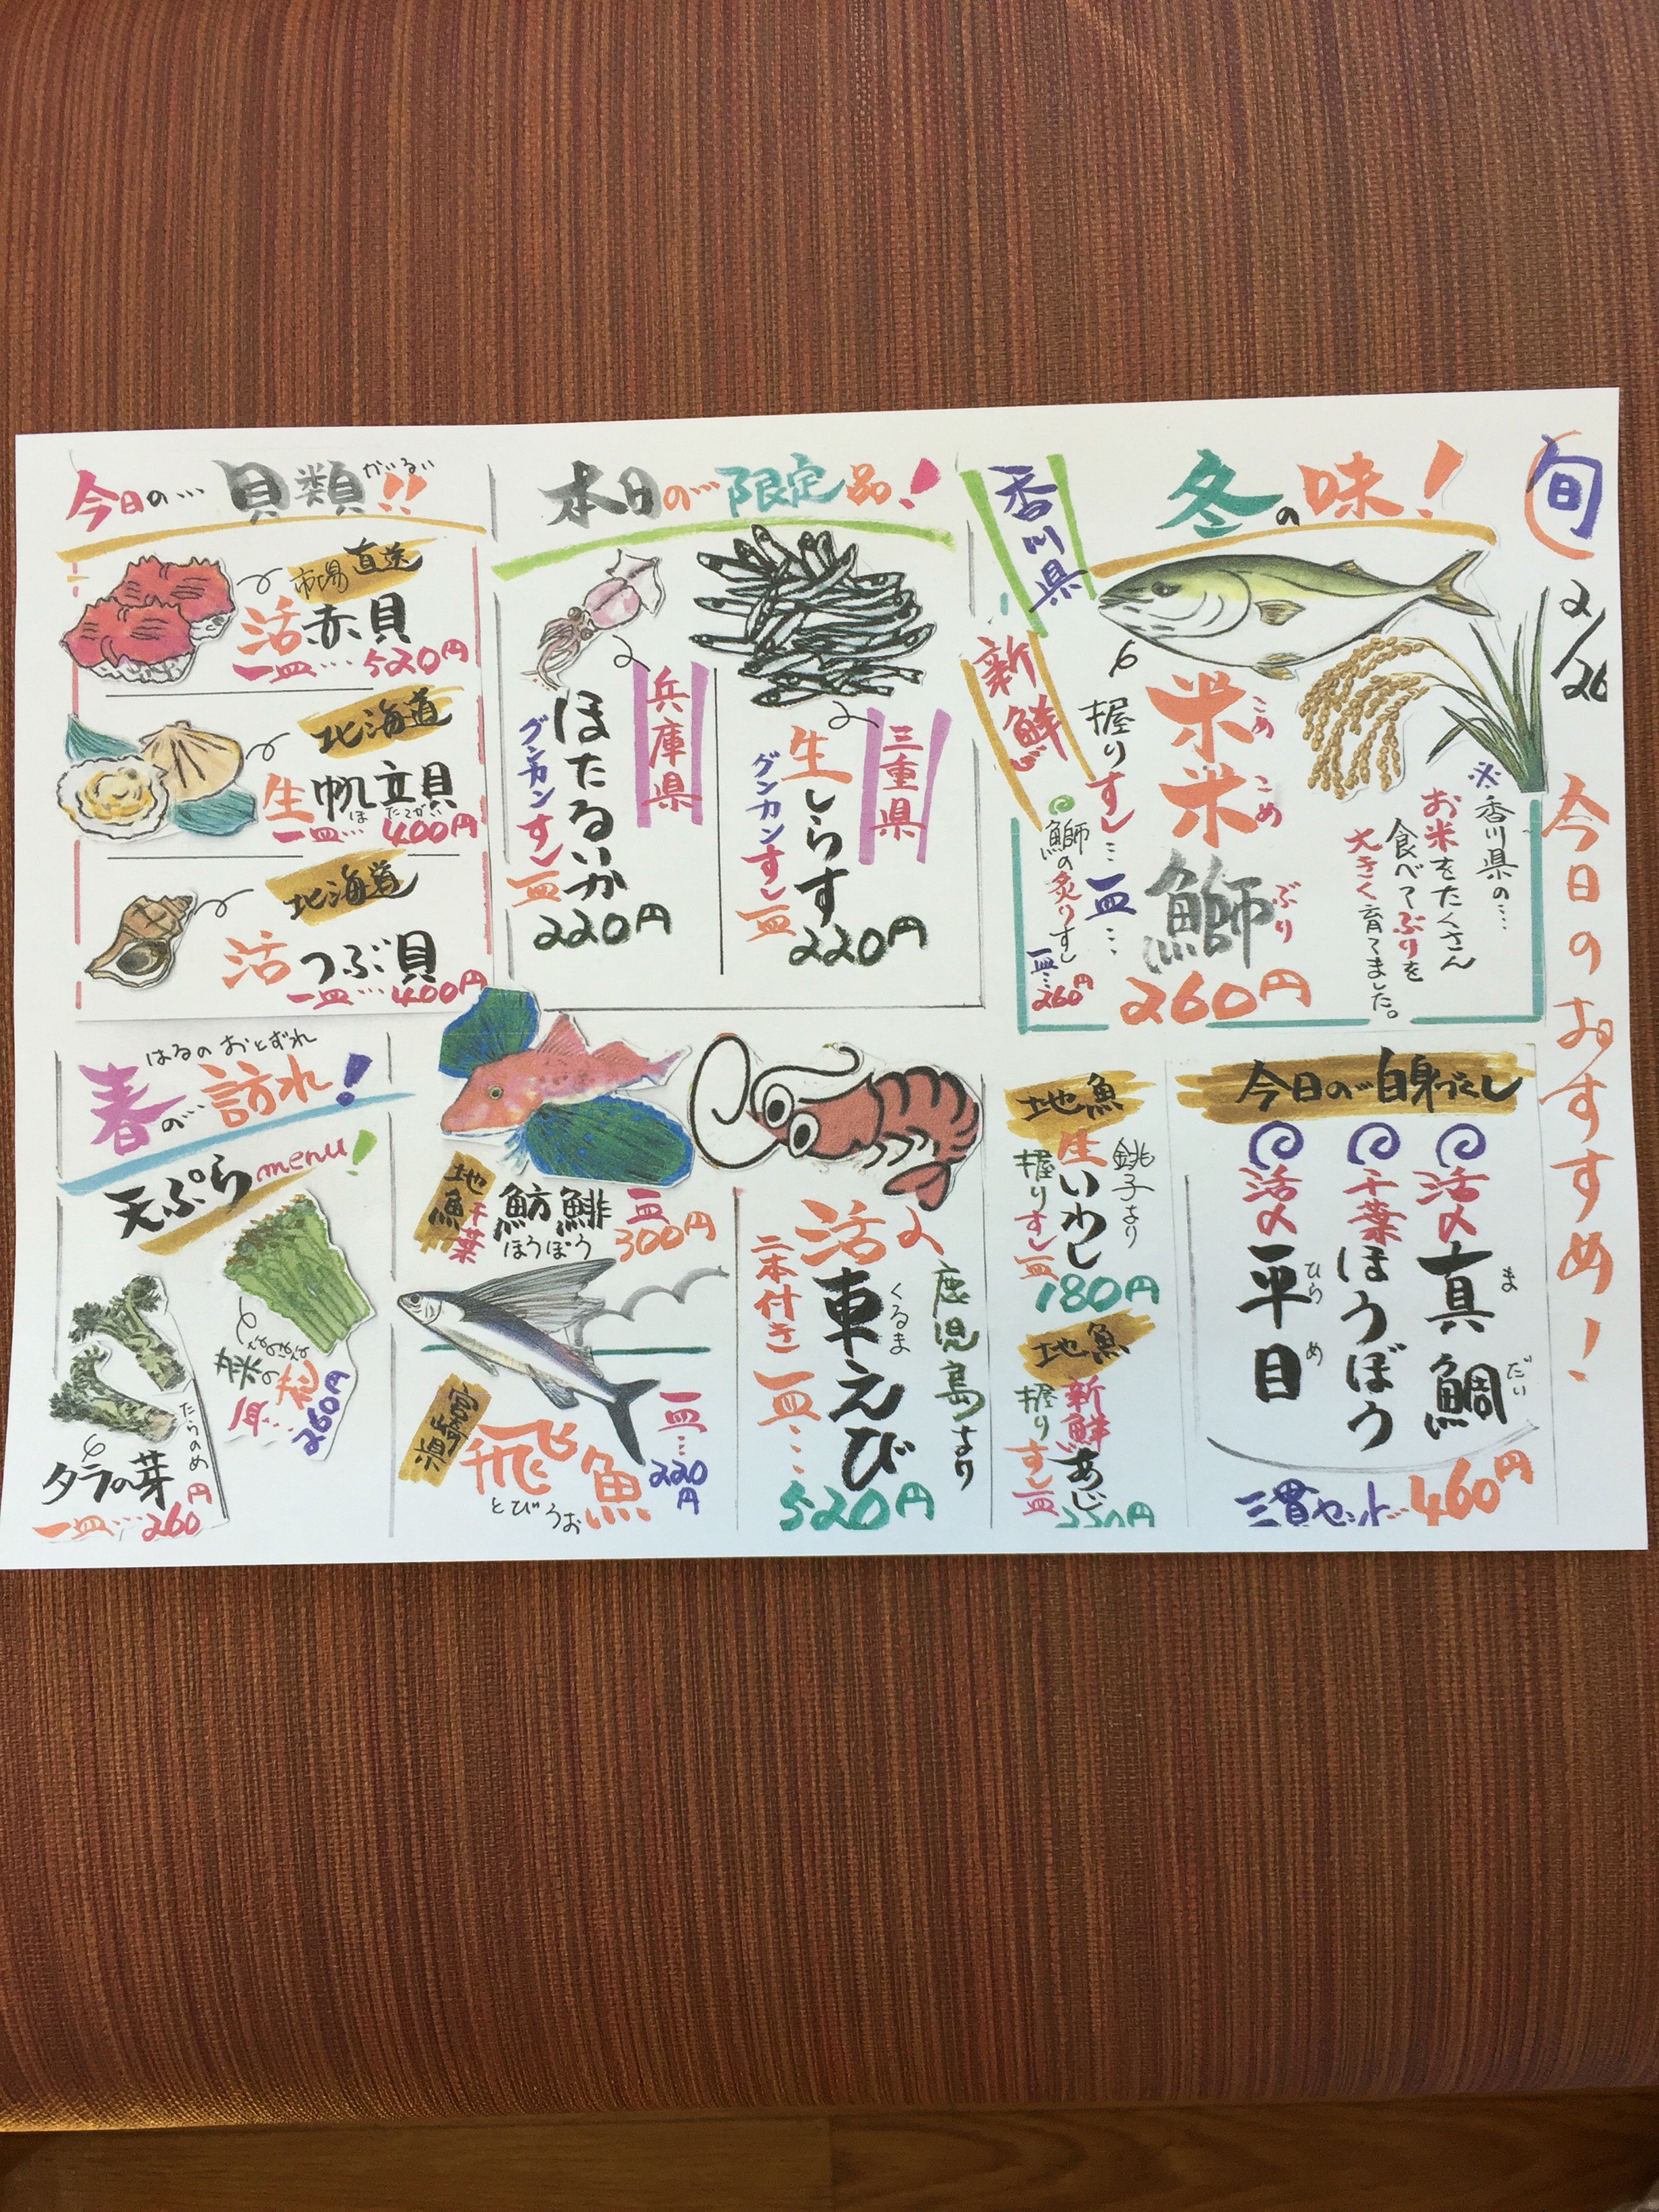 旬
2/26
今日のおすすめ!
冬の味!
香川県
新鮮
米米鰤
こめ
こめ
ぶり
握りすし…一皿…
260円
※香川県の…
お米をたくさん
食べてぶりを
大きく育てました。
鰤の炙りすし
一皿…260円
本日の…限定品!
三重県
生しらす
グンカンすし一皿
220円
兵庫県
ほたるいか
グンカンすし一皿
220円
今日の…貝類!!
かいるい
市場直送
活赤貝
一皿…520円
北海道
生帆立貝
ほたてがい
一皿…400円
北海道
活つぶ貝
一皿…400円
今日の…白身づくし
活〆真鯛
まだい
千葉ほうぼう
活〆平目
ひらめ
三貫セット…460円
地魚
銚子より
生いわし
握りすし一皿
180円
地魚
新鮮あじ
握りすし一皿
鹿児島より
活〆車えび
くるま
二本付き一皿…
520円
地魚千葉
魴鮄
ほうぼう
一皿300円
飛魚
とびうお
一皿…220円
はるのおとずれ
春の…訪れ!
天ぷらmenu!
菜の花
一皿…260円
たらのめ
タラの芽
一皿…260円